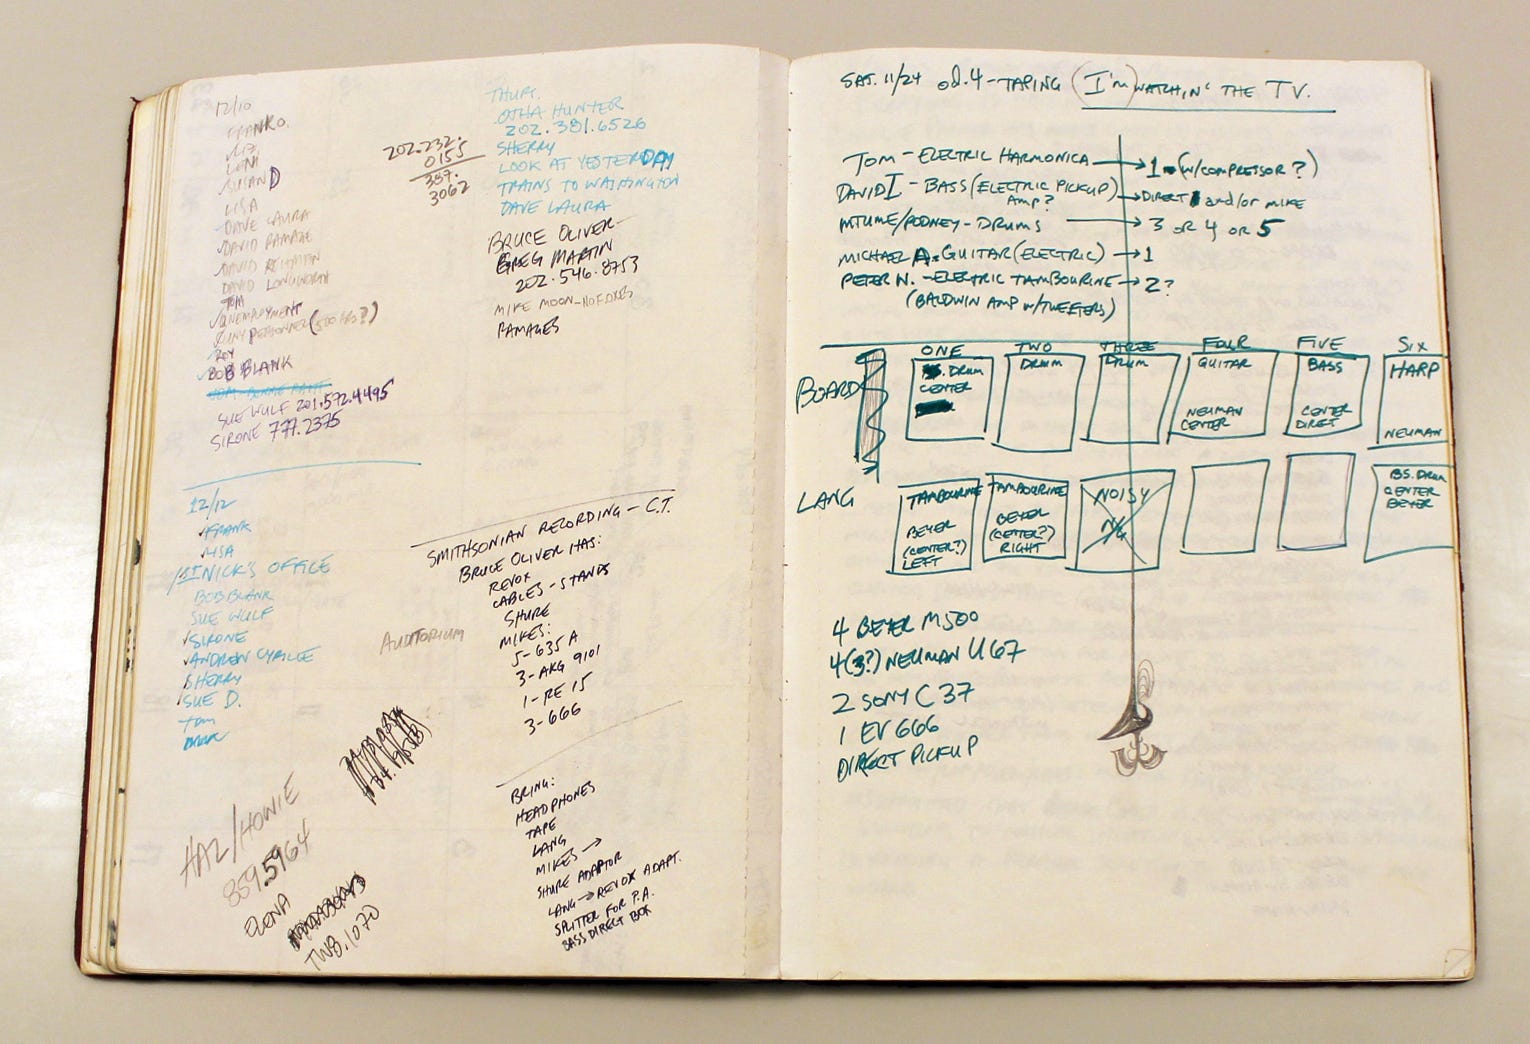 12/10
FRANK O.
LIZ
LENI
SUSAN D
LISA
DAVE LAURA
DAVID RAMAGE
DAVID REITMAN
DAVID LONGWORTH
TOM
UNEMPLOYMENT
SUNY PERSONNEL (500 HRS?)
ROY
BOB BLANK
SUE WULF 201.572.4495
SIRONE 777.2375
202.232.
0155
387.
3062
THURS.
OTHA HUNTER
202.381.6526
SHERRY
LOOK AT YESTERDAY
TRAINS TO WASHINGTON
DAVE LAURA
BRUCE OLIVER-
GREG MARTIN
202.546.8753
MIKE MOON-NO FOXES
RAMAGES
12/12
FRANK
LISA
NICK'S OFFICE
BOB BLANK
SUE WULF
SIRONE
ANDREW CYRILLE
SHERRY
SUE D.
TOM
AUDITORIUM
HAZ/HOWIE
859.5964
ELENA
TW8.1070
SMITHSONIAN RECORDING - C.T.
BRUCE OLIVER HAS:
REVOX
CABLES - STANDS
SHURE
MIKES:
5-635 A
3-AKG 9101
1-RE 15
3-666
BRING:
HEADPHONES
TAPE
LANG
MIKES →
SHURE ADAPTOR
LANG → REVOX ADAPT.
SPLITTER FOR P.A.
BASS DIRECT BOX
SAT. 11/24 od.4-TAPING (I'm) WATCHIN' THE TV.
TOM - ELECTRIC HARMONICA → 1 - (W/COMPRESSOR?)
DAVID I - BASS (ELECTRIC PICKUP) → DIRECT and/or MIKE
AMP?
MTUME/RODNEY - DRUMS → 3 OR 4 OR 5
MICHAEL A. GUITAR (ELECTRIC) → 1
PETER N. - ELECTRIC TAMBOURINE → 2?
(BALDWIN AMP W/TWEETERS)
ONE TWO THREE FOUR FIVE SIX
BOARD
BS. DRUM
CENTER
DRUM
DRUM
GUITAR
NEUMAN
CENTER
BASS
CENTER
DIRECT
HARP
NEUMAN
LANG
TAMBOURINE
BEYER
(CENTER?)
LEFT
TAMBOURINE
BEYER
(CENTER?)
RIGHT
NOISY
N/G
BS. DRUM
CENTER
BEYER
4 BEYER M500
4(3?) NEUMAN U67
2 SONY C 37
1 EV 666
DIRECT PICKUP